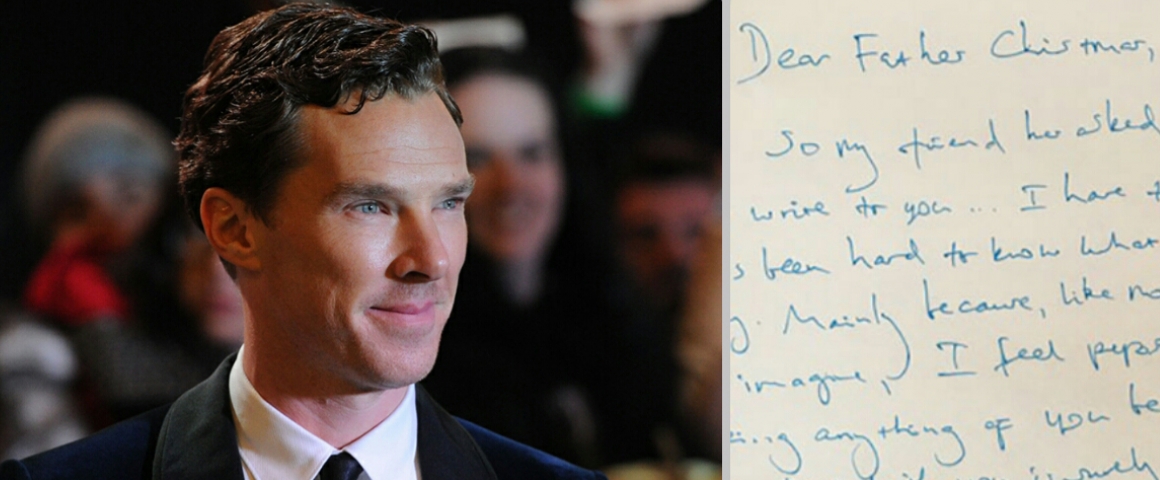 Dear Father Christmas,
So my friend has asked
write to you... I have t
s been hard to know what
g. Mainly because, like mo
imagine, I feel
ing anything of you be